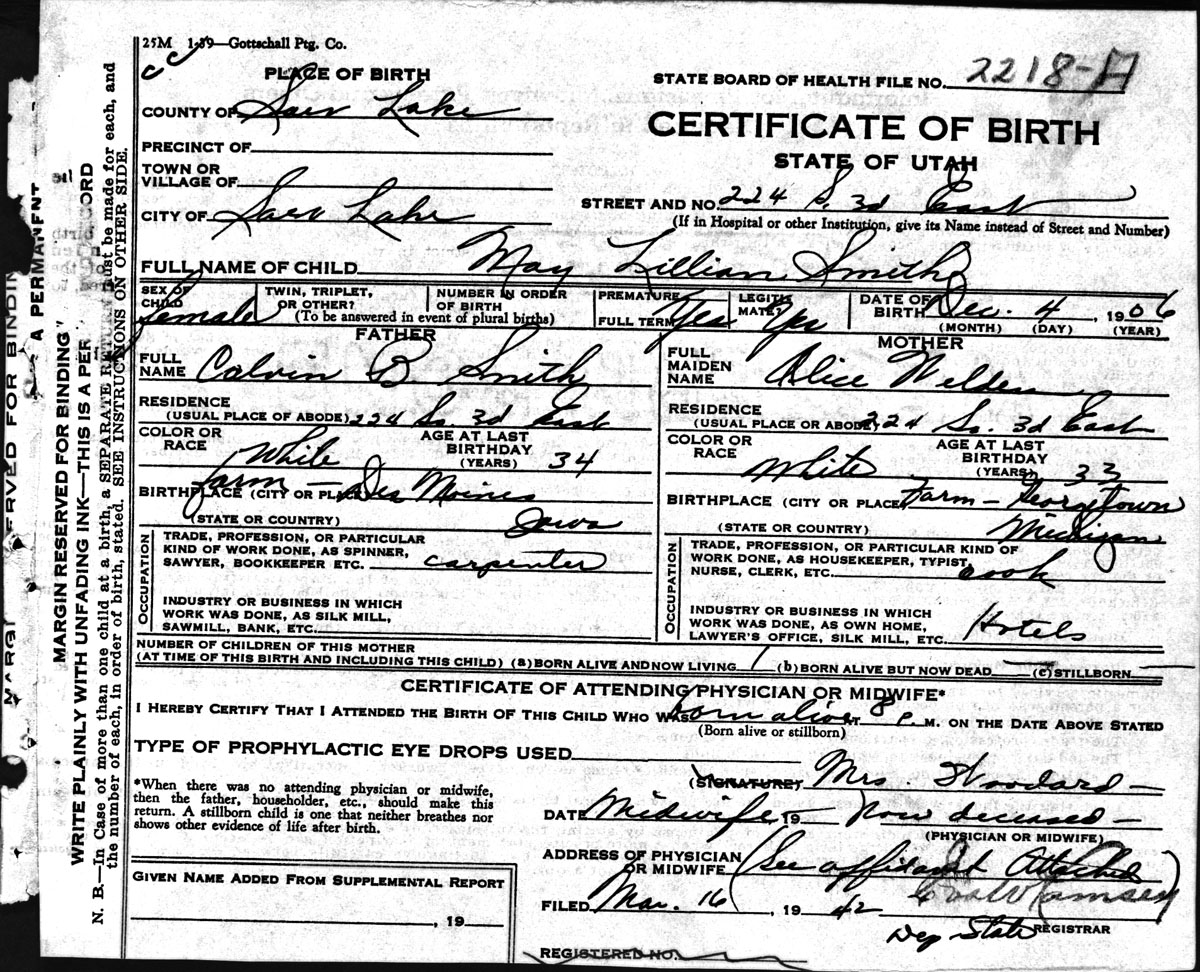 25M 1-39—Gottschall Ptg. Co.
PLACE OF BIRTH
COUNTY OF Salt Lake
PRECINCT OF
TOWN OR
VILLAGE OF
CITY OF Salt Lake
STATE BOARD OF HEALTH FILE NO. 2218-
CERTIFICATE OF BIRTH
STATE OF UTAH
STREET AND NO. 224 S. 3d East
(If in Hospital or other Institution, give its Name instead of Street and Number)
FULL NAME OF CHILD May Lillian Smith
SEX OF CHILD female
TWIN, TRIPLET, OR OTHER?
NUMBER IN ORDER OF BIRTH
(To be answered in event of plural births)
PREMATURE
FULL TERM Yes
LEGITIMATE? Yes
DATE OF BIRTH Dec. 4, 1906
(MONTH) (DAY) (YEAR)
FATHER
FULL NAME Calvin B Smith
RESIDENCE
(USUAL PLACE OF ABODE) 224 So. 3d East
COLOR OR RACE White
AGE AT LAST BIRTHDAY (YEARS) 34
BIRTHPLACE (CITY OR PLACE) farm — Des Moines
(STATE OR COUNTRY) Iowa
OCCUPATION
TRADE, PROFESSION, OR PARTICULAR
KIND OF WORK DONE, AS SPINNER,
SAWYER, BOOKKEEPER ETC. carpenter
INDUSTRY OR BUSINESS IN WHICH
WORK WAS DONE, AS SILK MILL,
SAWMILL, BANK, ETC.
MOTHER
FULL MAIDEN NAME Alice Welden
RESIDENCE
(USUAL PLACE OR ABODE) 224 So. 3d East
COLOR OR RACE White
AGE AT LAST BIRTHDAY (YEARS) 33
BIRTHPLACE (CITY OR PLACE) Farm — Georgetown
(STATE OR COUNTRY) Michigan
OCCUPATION
TRADE, PROFESSION, OR PARTICULAR KIND OF
WORK DONE, AS HOUSEKEEPER, TYPIST,
NURSE, CLERK, ETC. cook
INDUSTRY OR BUSINESS IN WHICH
WORK WAS DONE, AS OWN HOME,
LAWYER'S OFFICE, SILK MILL, ETC. Hotels
NUMBER OF CHILDREN OF THIS MOTHER
(AT TIME OF THIS BIRTH AND INCLUDING THIS CHILD) (a) BORN ALIVE AND NOW LIVING 1 (b) BORN ALIVE BUT NOW DEAD — (c) STILLBORN —
CERTIFICATE OF ATTENDING PHYSICIAN OR MIDWIFE*
I HEREBY CERTIFY THAT I ATTENDED THE BIRTH OF THIS CHILD WHO WAS born alive AT 8 P. M. ON THE DATE ABOVE STATED
(Born alive or stillborn)
TYPE OF PROPHYLACTIC EYE DROPS USED
*When there was no attending physician or midwife,
then the father, householder, etc., should make this
return. A stillborn child is one that neither breathes nor
shows other evidence of life after birth.
(SIGNATURE) Mrs Woodard —
DATE Midwife, 19 Now deceased —
(PHYSICIAN OR MIDWIFE)
ADDRESS OF PHYSICIAN
OR MIDWIFE (See affidavit Attached)
FILED Mar. 16, 1942 Ramsey
Dep State REGISTRAR
REGISTERED NO.
GIVEN NAME ADDED FROM SUPPLEMENTAL REPORT
, 19
MARGIN RESERVED FOR BINDING"
WRITE PLAINLY WITH UNFADING INK—THIS IS A PER ORD
N. B.—In Case of more than one child at a birth, a SEPARATE RETURN must be made for each, and
the number of each, in order of birth, stated. SEE INSTRUCTIONS ON OTHER SIDE.
A PERMANENT